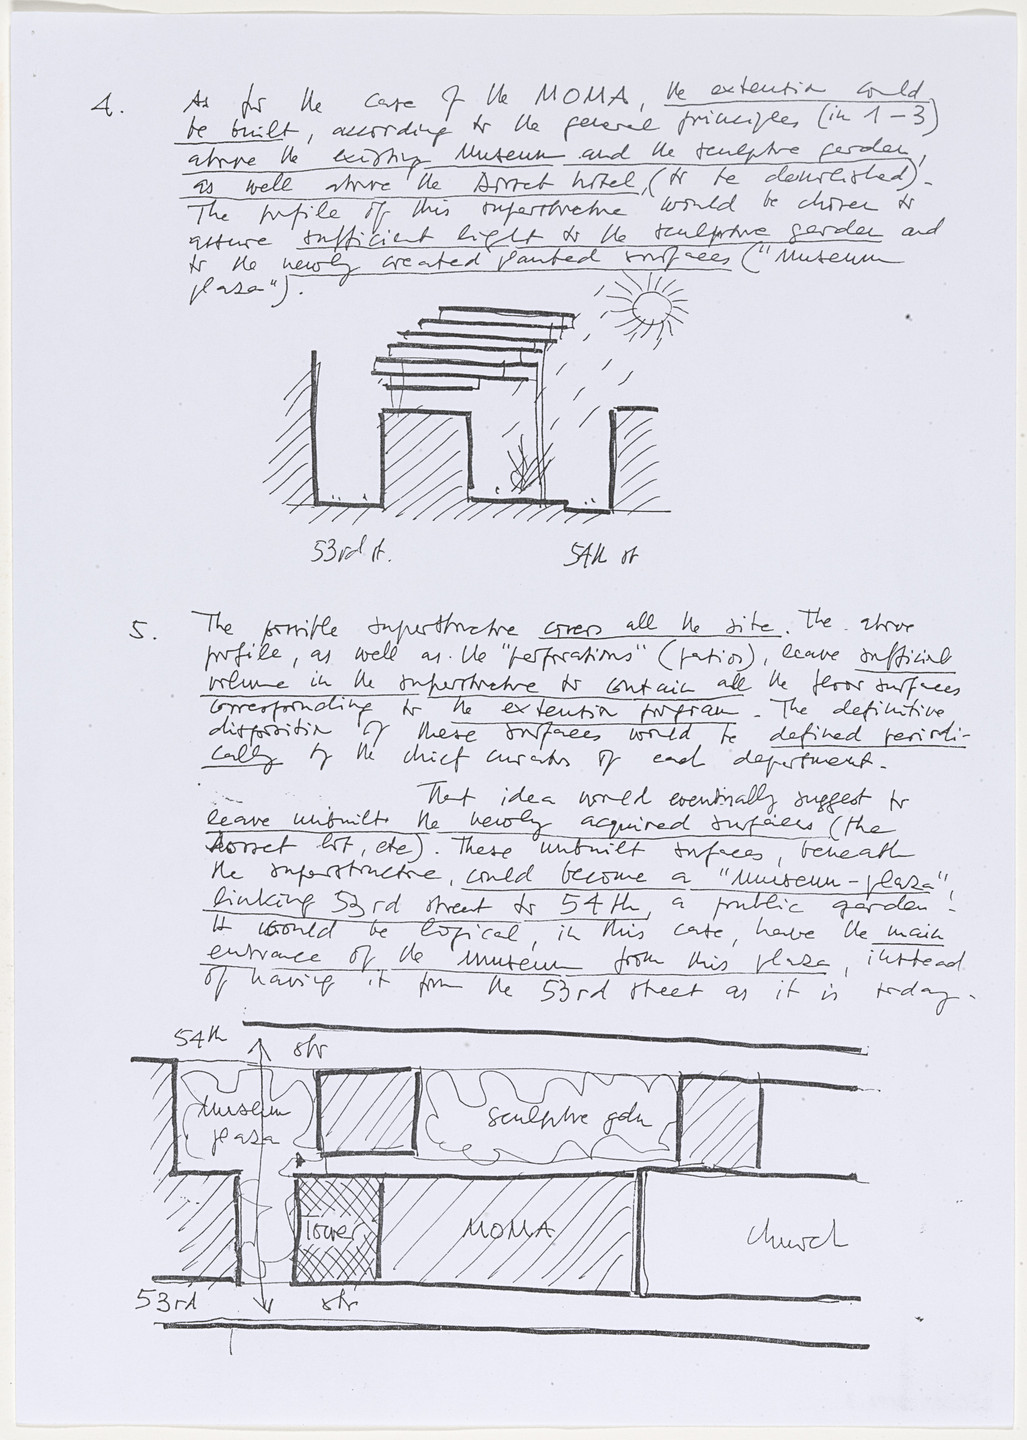 4. As for the case of the MOMA, the extention could
be built, according to the general principles (in 1-3)
above the existing Museum and the sculptre garden,
as well above the Dorset hotel, (to be demolished).
The profile of this superstructure would be chosen to
assure sufficient light to the sculptre garden and
to the newly created planted surfaces ("Museum
plaza").
53rd st.
54th st
5. The possible superstructure covers all the site. The above
profile, as well as the "perforations" (patios), leave sufficient
volume in the superstructure to contain all the floor surfaces
corresponding to the extention program. The definitive
disposition of these surfaces would be defined periodi-
cally by the chief curators of each department.
That idea would eventually suggest to
leave unbuilt the newly acquired surfaces (the
Dorset lot, etc). These unbuilt surfaces, beneath
the superstructure, could become a "Museum-plaza",
linking 53rd street to 54th, a public garden.
It would be logical, in this case, have the main
entrance of the Museum from this plaza, instead
of having it from the 53rd street as it is today.
54th str
Museum
plaza
sculptre gdn
tower
MOMA
church
53rd str